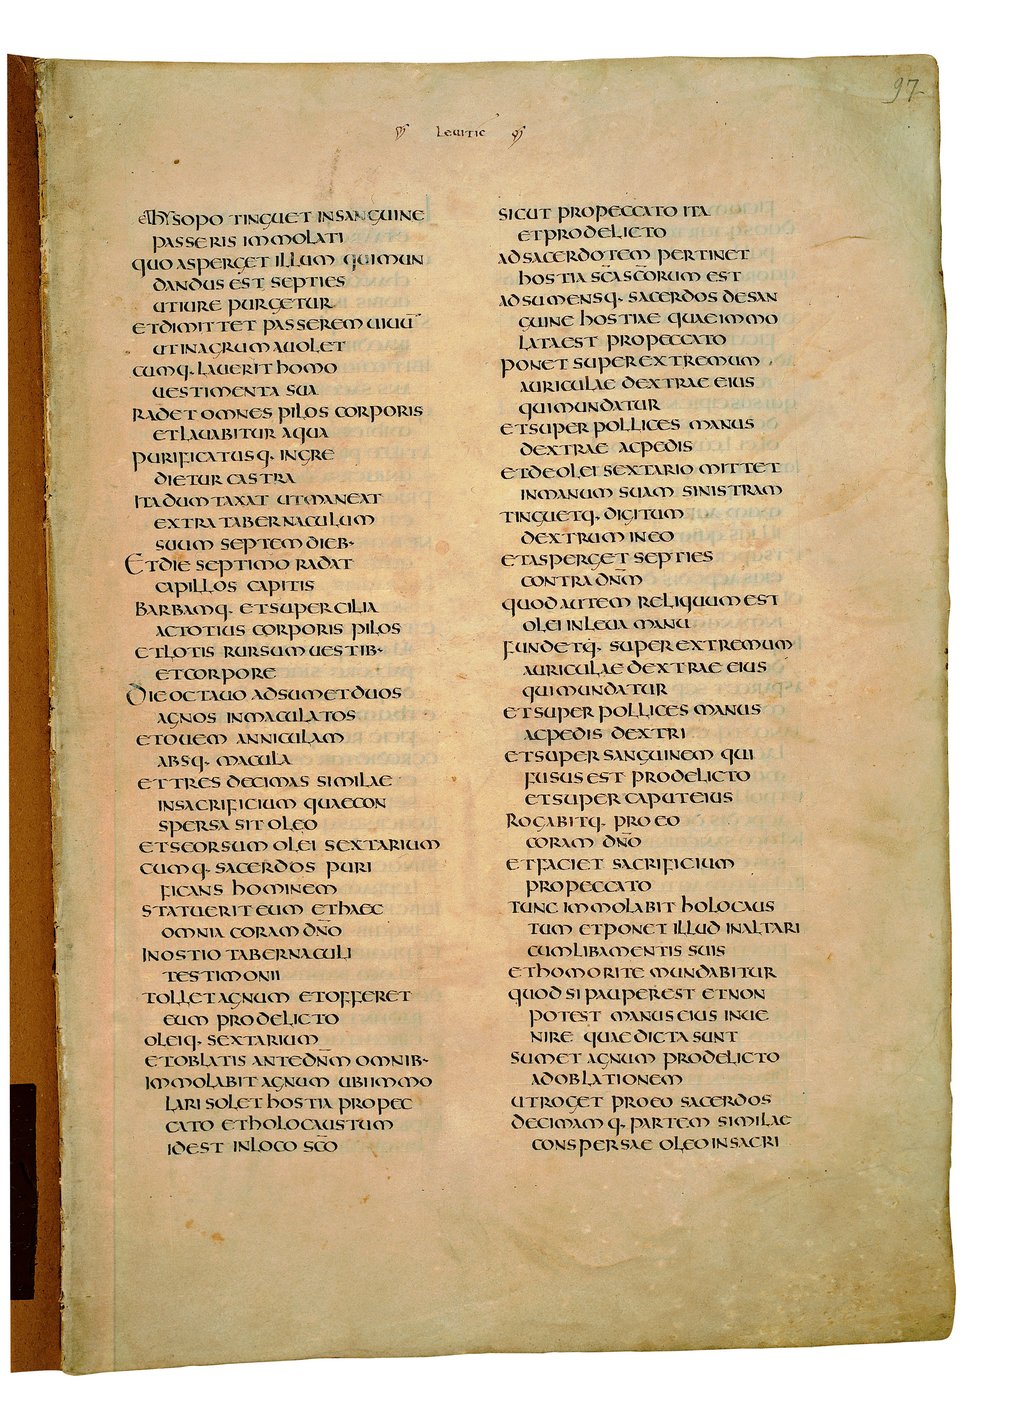 97
Levitic
et hysopo tinguet in sanguine
passeris immolati
quo asperget illum qui mun
dandus est septies
ut iure purgetur
et dimittet passerem uiuū
ut in agrum auolet
cumq· lauerit homo
uestimenta sua
radet omnes pilos corporis
et lauabitur aqua
purificatusq· ingre
dietur castra
ita dumtaxat ut maneat
extra tabernaculum
suum septem dieb·
Et die septimo radat
capillos capitis
barbamq· et supercilia
ac totius corporis pilos
et lotis rursum uestib·
et corpore
Die octauo adsumet duos
agnos inmaculatos
et ouem anniculam
absq· macula
et tres decimas similae
in sacrificium quae con
spersa sit oleo
et seorsum olei sextarium
cumq· sacerdos puri
ficans hominem
statuerit eum et haec
omnia coram dn̄o
in ostio tabernaculi
testimonii
tollet agnum et offeret
eum pro delicto
oleiq· sextarium
et oblatis ante dn̄m omnib·
immolabit agnum ubi immo
lari solet hostia pro pec
cato et holocaustum
id est in loco sc̄o
sicut pro peccato ita
et pro delicto
ad sacerdotem pertinet
hostia sc̄a sc̄orum est
adsumensq· sacerdos de san
guine hostiae quae immo
lata est pro peccato
ponet super extremum
auriculae dextrae eius
qui mundatur
et super pollices manus
dextrae ac pedis
et de olei sextario mittet
in manum suam sinistram
tinguetq· digitum
dextrum in eo
et asperget septies
contra dn̄m
quod autem reliquum est
olei in leua manu
fundetq· super extremum
auriculae dextrae eius
qui mundatur
et super pollices manus
ac pedis dextri
et super sanguinem qui
fusus est pro delicto
et super caput eius
Rogabitq· pro eo
coram dn̄o
et faciet sacrificium
pro peccato
tunc immolabit holocaus
tum et ponet illud in altari
cum libamentis suis
et homo rite mundabitur
quod si pauper est et non
potest manus eius inue
nire quae dicta sunt
sumet agnum pro delicto
ad oblationem
ut roget pro eo sacerdos
decimamq· partem similae
conspersae oleo in sacri